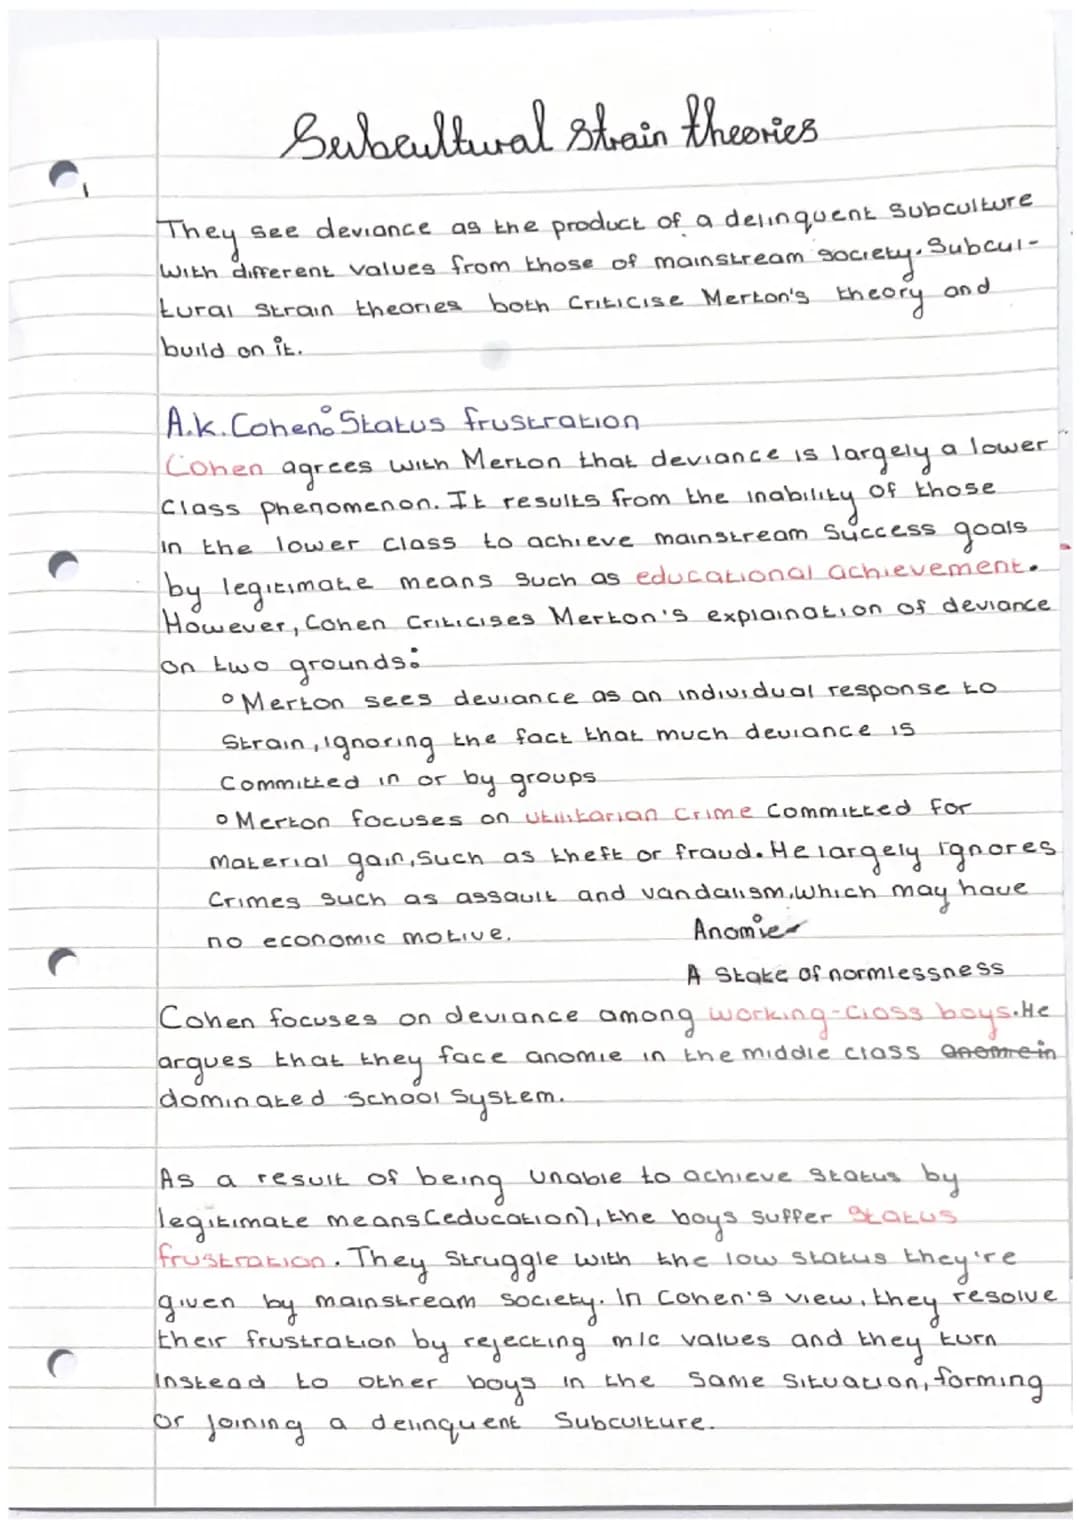 Subcultural Strain theories
They see deviance as the product of a delinquent Subculture
with different values from those of mainstream society. Subcul-
tural Strain theories both Criticise Merton's theory and
build on it.
A.k.Cohen: Status frustration
Cohen agrees with Merton that deviance is largely a lower
Class phenomenon. It results from the inability of those
in the lower class to achieve mainstream Success goals
by legitimate means such as educational achievement.
However, Cohen Criticises Merton's explaination of deviance
on two grounds:
° Merton sees deviance as an individual response to
Strain, ignoring the fact that much deviance is
Committed in or by groups
° Merton focuses on utilitarian Crime Committed for
material gain, Such as theft or fraud. He largely ignores
Crimes such as assault and vandalism, which may have
no economic motive.
Anomie
A State of normlessness
Cohen focuses on deviance among working-class boys. He
argues that they face anomie in the middle class anomie in
dominated school System.
As a result of being unable to achieve Status by
legitimate means (education), the boys suffer Status
frustration. They Struggle with the low status they're
given by mainstream society. In Cohen's view, they resolve
their frustration by rejecting m/c values and they turn
instead to other boys in the Same Situation, forming
or joining a delinquent Subculture.